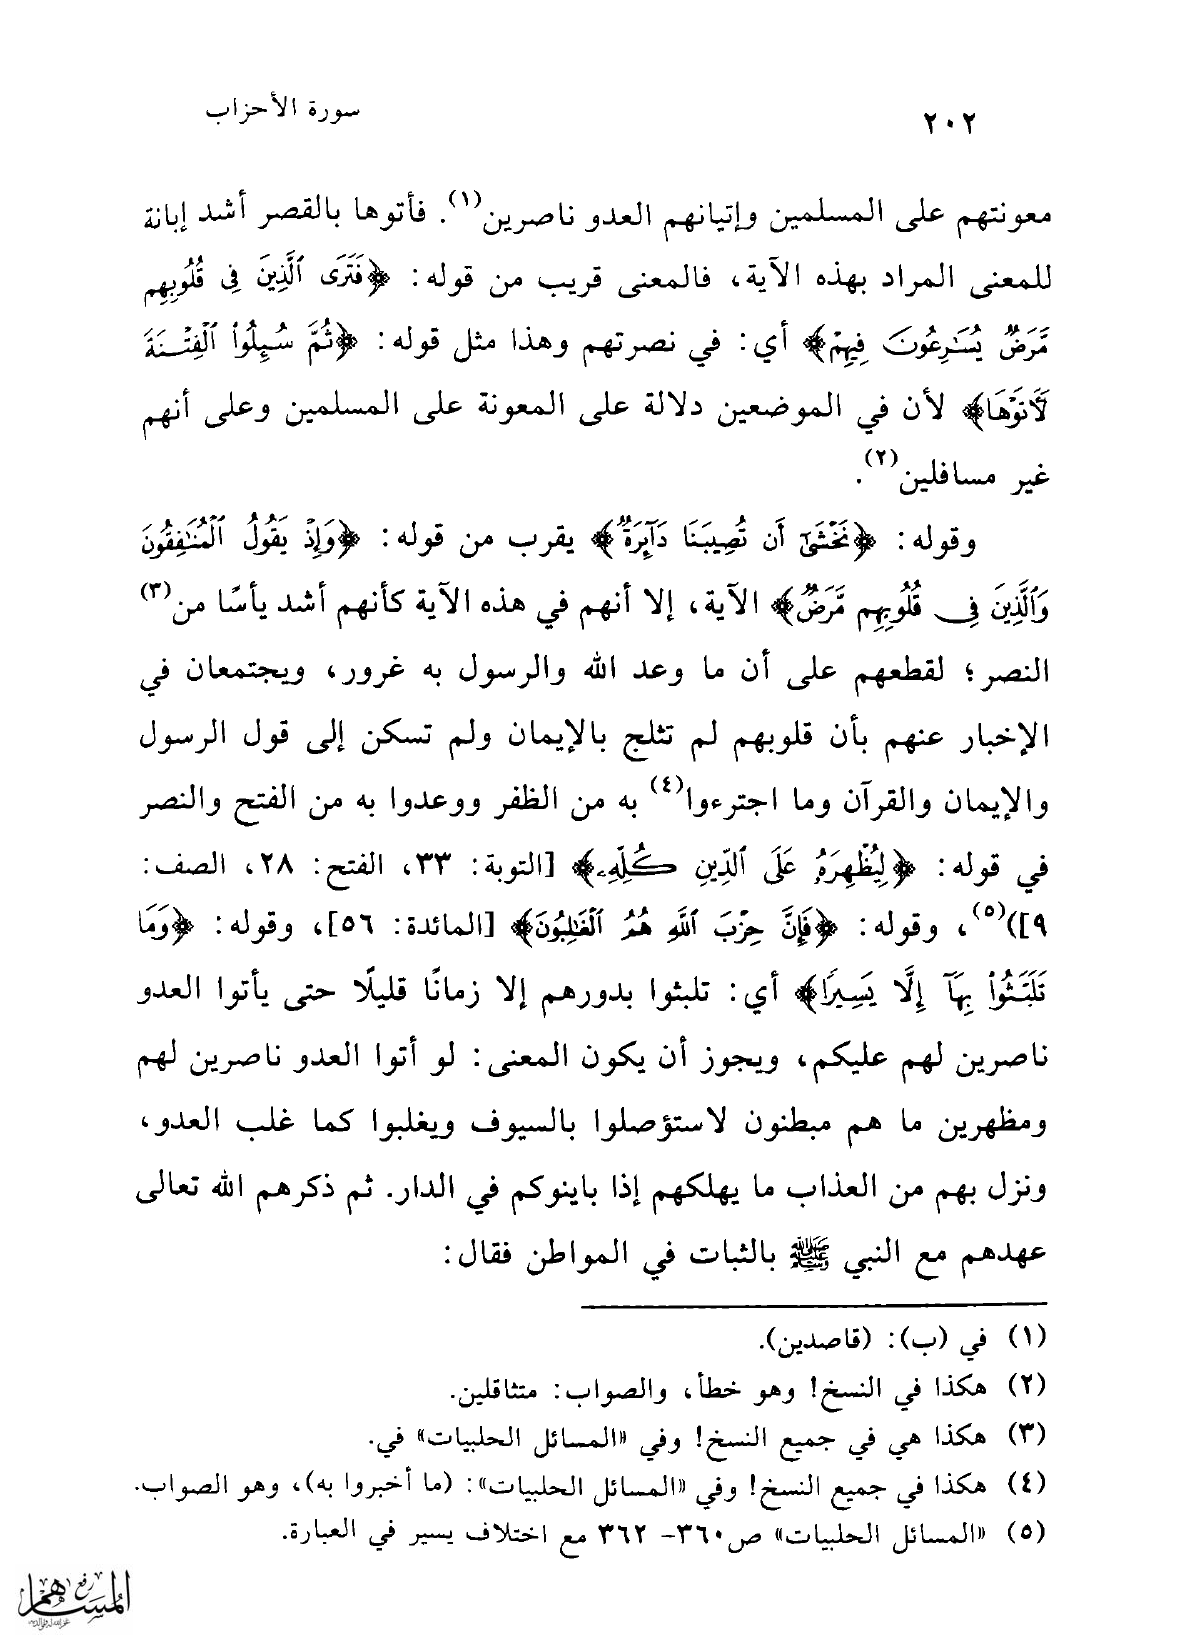 ٢٠٢
سورة الأحزاب
معونتهم على المسلمين وإتيانهم العدو ناصرين(١). فأتوها بالقصر أشد إبانة
للمعنى المراد بهذه الآية، فالمعنى قريب من قوله: ﴿فَتَرَى ٱلَّذِينَ فِى قُلُوبِهِم
مَّرَضٌ يُسَٰرِعُونَ فِيهِمْ﴾ أي: في نصرتهم وهذا مثل قوله: ﴿ثُمَّ سُئِلُوا۟ ٱلْفِتْنَةَ
لَأَتَوْهَا﴾ لأن في الموضعين دلالة على المعونة على المسلمين وعلى أنهم
غير مسافلين(٢).
وقوله: ﴿نَخْشَىٰٓ أَن تُصِيبَنَا دَآئِرَةٌ﴾ يقرب من قوله: ﴿وَإِذْ يَقُولُ ٱلْمُنَٰفِقُونَ
وَٱلَّذِينَ فِى قُلُوبِهِم مَّرَضٌ﴾ الآية، إلا أنهم في هذه الآية كأنهم أشد يأسًا من(٣)
النصر؛ لقطعهم على أن ما وعد الله والرسول به غرور، ويجتمعان في
الإخبار عنهم بأن قلوبهم لم تثلج بالإيمان ولم تسكن إلى قول الرسول
والإيمان والقرآن وما اجترءوا(٤) به من الظفر ووعدوا به من الفتح والنصر
في قوله: ﴿لِيُظْهِرَهُۥ عَلَى ٱلدِّينِ كُلِّهِۦ﴾ [التوبة: ٣٣، الفتح: ٢٨، الصف:
٩])(٥)، وقوله: ﴿فَإِنَّ حِزْبَ ٱللَّهِ هُمُ ٱلْغَٰلِبُونَ﴾ [المائدة: ٥٦]، وقوله: ﴿وَمَا
تَلَبَّثُوا۟ بِهَآ إِلَّا يَسِيرًا﴾ أي: تلبثوا بدورهم إلا زمانًا قليلًا حتى يأتوا العدو
ناصرين لهم عليكم، ويجوز أن يكون المعنى: لو أتوا العدو ناصرين لهم
ومظهرين ما هم مبطنون لاستؤصلوا بالسيوف ويغلبوا كما غلب العدو،
ونزل بهم من العذاب ما يهلكهم إذا باينوكم في الدار. ثم ذكرهم الله تعالى
عهدهم مع النبي ﷺ بالثبات في المواطن فقال:
(١) في (ب): (قاصدين).
(٢) هكذا في النسخ! وهو خطأ، والصواب: متثاقلين.
(٣) هكذا هي في جميع النسخ! وفي «المسائل الحلبيات» في.
(٤) هكذا في جميع النسخ! وفي «المسائل الحلبيات»: (ما أخبروا به)، وهو الصواب.
(٥) «المسائل الحلبيات» ص٣٦٠- ٣٦٢ مع اختلاف يسير في العبارة.